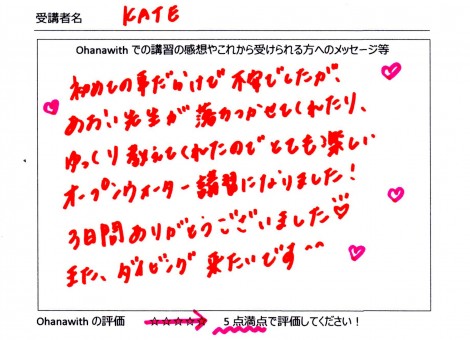 受講者名 KATE
Ohanawith での講習の感想やこれから受けられる方へのメッセージ等
初めての事だらけで不安でしたが、
あおい先生が落ちつかせてくれたり、
ゆっくり教えてくれたのでとても楽しい
オープンウォーター講習になりました！
3日間ありがとうございました♡
また、ダイビング来たいです^^
Ohanawith の評価 ☆☆☆☆☆ 5 点満点で評価してください！